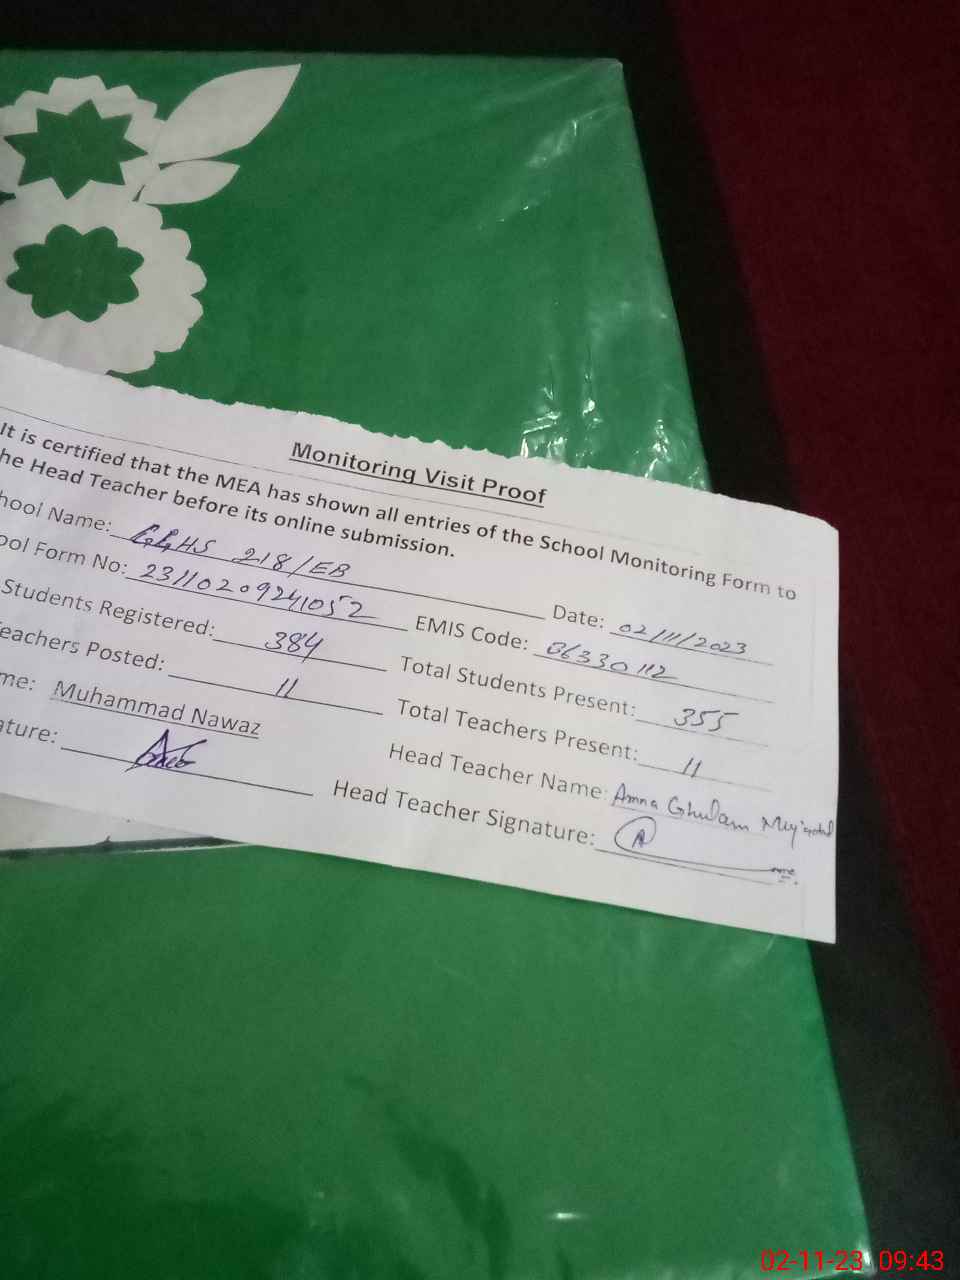 Monitoring Visit Proof
It is certified that the MEA has shown all entries of the School Monitoring Form to
he Head Teacher before its online submission.
hool Name: GGHS 218/EB Date: 02/11/2023
ool Form No: 23110209241052 EMIS Code: 36330112
Students Registered: 384 Total Students Present: 355
eachers Posted: 11 Total Teachers Present: 11
me: Muhammad Nawaz Head Teacher Name: Amna Ghulam
ature: Head Teacher Signature:
02-11-23 09:43